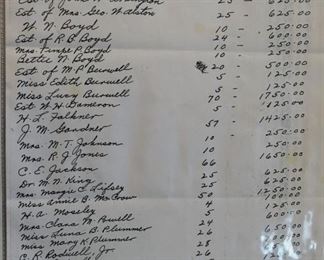 Est of Mrs. Geo. W. Alston 25 - 625.00
W. N. Boyd 10 - 250.00
Est of R. B. Boyd 24 - 600.00
Mrs. Timpe P. Boyd 10 - 250.00
Bettie N. Boyd 10 250.00
Est of M P Burwell 20 - 500.00
Miss Edith Burwell 5 - 125.00
Miss Lucy Burwell 5 - 125.00
Est W. H. Dameron 70 - 1750.00
H. L. Falkner 5 - 125.00
J. M. Gardner 57 - 1425.00
Mrs. M. T. Johnson 10 250.00
Mrs. R. J. Jones 10 250.00
C. E. Jackson 66 1650.00
Dr. M. N. King 25 625.00
Mrs. Margie C. Lifsey 25 625.00
Miss Annie B. McCraw 50 1250.00
H. A. Moseley 4 100.00
Mrs. Clara M. Powell 5 125.00
Miss Luna B. Plummer 24 600.00
Miss Mary K. Plummer 26 650.00
C. R. Rodwell, Jr.